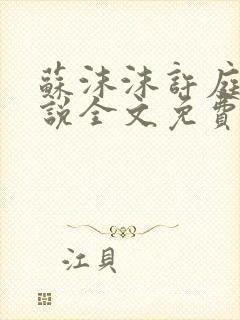 蘇沫沫許庭
說全文免費
江貝